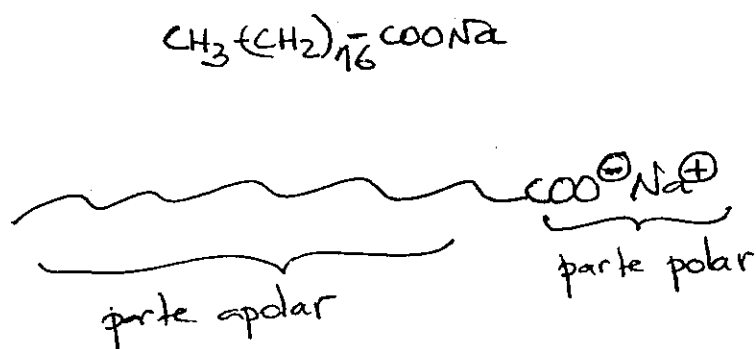 CH3-(CH2)16-COONa
COO⊖Na⊕
parte apolar
parte polar